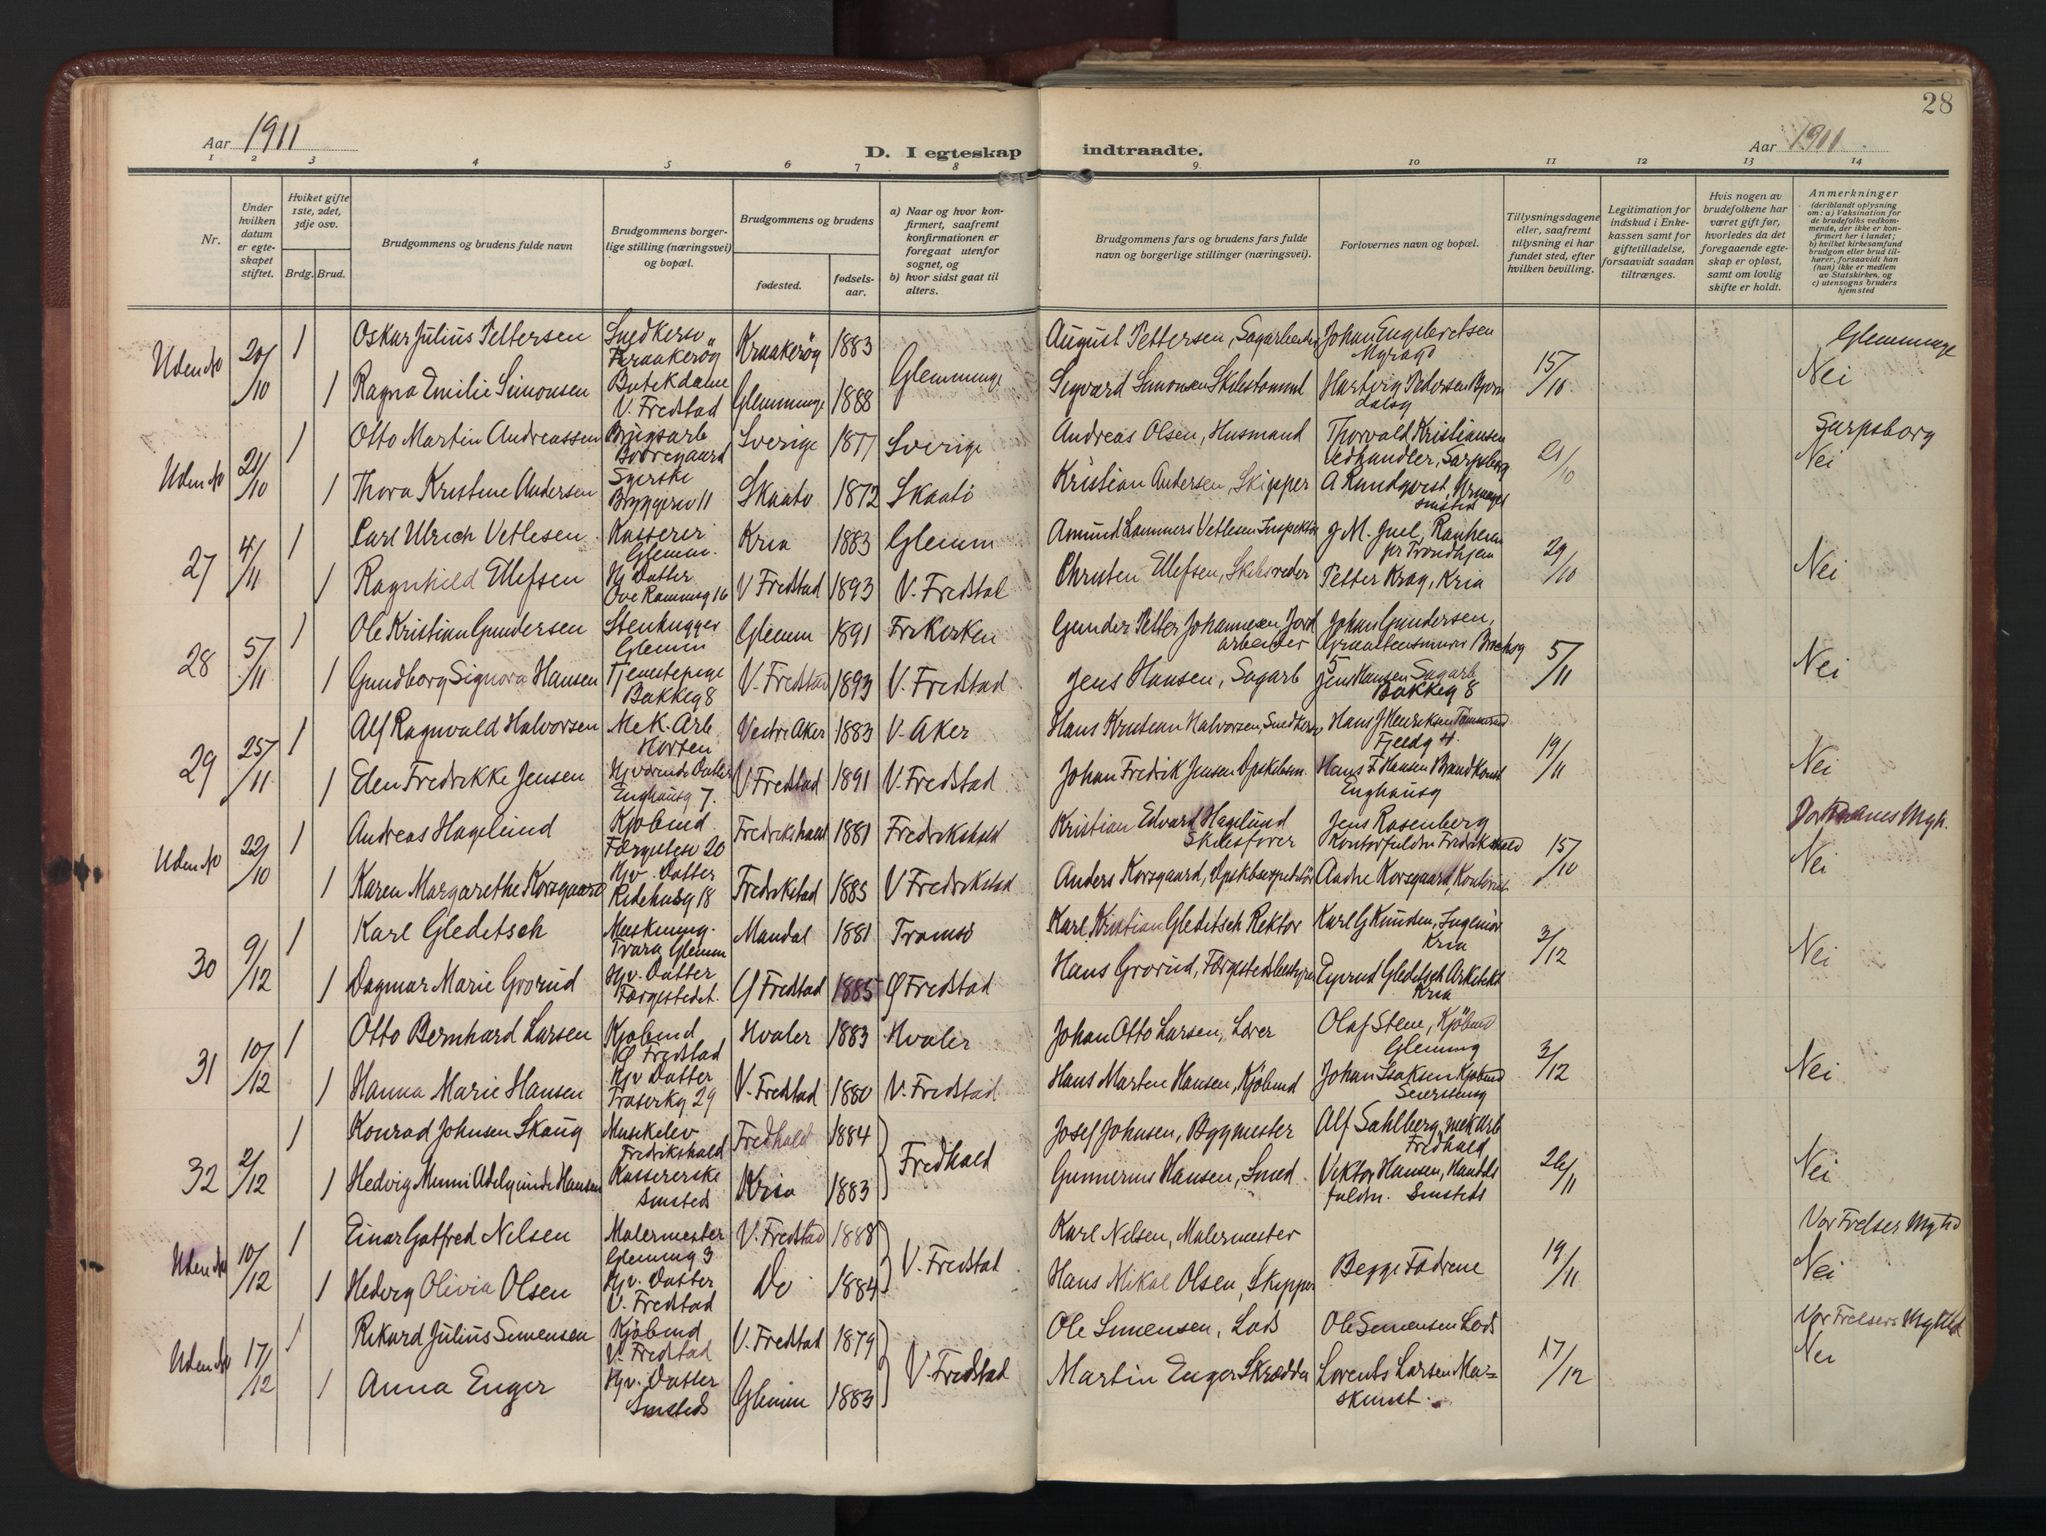 28
Aar 1911
D. I egteskap indtraadte.
Aar 1911
1 2 3 4 5 6 7 8 9 10 11 12 13 14
Nr.
Under hvilken datum er egteskapet stiftet.
Hviket gifte 1ste, 2det, 3dje osv.
Brdg. Brud.
Brudgommens og brudens fulde navn
Brudgommens borgerlige stilling (næringsvei) og bopæl.
Brudgommens og brudens
fødested.
fødselsaar.
a) Naar og hvor konfirmert, saafremt konfirmationen er foregaat utenfor sognet, og
b) hvor sidst gaat til alters.
Brudgommens fars og brudens fars fulde navn og borgerlige stillinger (næringsvei).
Forlovernes navn og bopæl.
Tillysningsdagene eller, saafremt tilysning ei har fundet sted, efter hvilken bevilling.
Legitimation for indskud i Enkekassen samt for giftetilladelse, forsaavidt saadan tiltrænges.
Hvis nogen av brudefolkene har været gift før, hvorledes da det foregaaende egteskap er opløst, samt om lovlig skifte er holdt.
Anmerkninger
(deriblandt oplysning om: a) Vaksination for de brudefolks vedkommende, der ikke er konfirmert her i landet; b) hvilket kirkesamfund brudgom eller brud tilhører, forsaavidt han (hun) ikke er medlem av Statskirken, og c) utensogns bruders hjemsted
Uden No 20/10 1 Oskar Julius Pettersen Snedkersv. Kraakerøy Kraakerøy 1883 Glemminge August Pettersen, Sagarbeider Johan Engebretsen Myrag 15/10 Glemminge
1 Ragna Emilie Simonsen Butikdame V. Fredstad Glemminge 1888 Sigvard Simonsen Skibstømmi Hartvig Pedersen Nei
Uden No 21/10 1 Otto Martin Andreassen Brugsarb Borregaard Sverige 1877 Sverige Andreas Olsen, Husmand Thorvald Kristiansen Vedhandler, Sarpsborg 21/10 Sarpsborg
1 Thora Kristine Andersen Syerske Bryggerev 11 Skaatø 1872 Skaatø Kristian Andersen, Skipper A Rundqvist, Nei
27 4/11 1 Carl Ulrich Vetlesen Kasserer Glemm. Kria 1883 Glemm Amund Lammers Vetlesen Inspektør J. M. Juel, Ranheim pr Trondhjem 29/10
1 Ragnhild Ellefsen Hj Datter Ove Rammsg 16 V Fredstad 1893 V. Fredstad Christen Ellefsen, Skibsreder Petter Krag, Kria Nei
28 5/11 1 Ole Kristian Gundersen Stenhugger Glemm Glemm 1891 Frikirken Gunder Petter Johannesen Jordarbeider Johan Gundersen, 5/11
1 Gundborg Signora Hansen Tjenestepige Bakkeg 8 V. Fredstad 1893 V. Fredstad Jens Hansen, Sagarb Jens Hansen Sagarb Bakkeg 8 Nei
29 25/11 1 Alf Ragnvald Halvorsen Mek. Arb. Horten Vestre Aker 1883 V. Aker Hans Kristian Halvorsen, Snedkersv Hans J Henriksen Tømmerm Fjeldg 4. 19/11
1 Elen Fredrikke Jensen Hjværende Datter Enghausg 7. V. Fredstad 1891 V. Fredstad Johan Fredrik Jensen Opskibsm. Hans F Hansen Brandkonst Enghausg Nei
Uden No 22/10 1 Andreas Hagelund Kjøbmd Færgelsv 20 Fredrikshald 1881 Fredrikshald Kristian Edvard Hagelund Skibsfører Jens Rosenberg Kontorfuldm Fredrikshald 15/10
1 Karen Margarethe Korsgaard Hjv. Datter Ridehusg 18 Fredrikstad 1885 V Fredrikstad Anders Korsgaard, Andre Korsgaard, Kontorist Nei
30 9/12 1 Karl Gleditsch Maskining. Trara Glemm Mandal 1881 Tromsø Karl Kristian Gleditsch Rektor Karl G Knudsen, Ingeniør Kria 3/12
1 Dagmar Marie Grorud Hjv. Datter Færgestedet. Ø Fredstad 1885 Ø Fredstad Hans Grorud, Færgestedsbestyrer Eyvind Gleditsch Arkitekt Kria Nei
31 10/12 1 Otto Bernhard Larsen Kjøbmd Ø Fredstad Hvaler 1883 Hvaler Johan Otto Larsen, Lærer Olaf Stene, Kjøbmd Glemmg 3/12
1 Hanna Marie Hansen Hjv Datter Traserkg 29 V. Fredstad 1880 V. Fredstad Hans Marten Hansen, Kjøbmd Johan Isaksen Kjøbmd Seiersteng Nei
32 2/12 1 Konrad Johnsen Skaug Musikelev Fredrikshald Fredhald 1884 Fredhald Josef Johnsen, Bygmester Alf Sahlberg, mek arb Fredhald 26/11
1 Hedvig Munni Adelgunde Hansen Kassererske Smsteds Kria 1883 Gunnerius Hansen, Smed Viktor Hansen, Handelsfuldm. Smsteds Nei
Uden No 10/12 1 Einar Gotfred Nilsen Malermester Glemmg 3 V. Fredstad 1888 V. Fredstad Karl Nilsen, Malermester Begge Fædrene 19/11 Vor Frelser Mghd
1 Hedvig Olivia Olsen Hjv. Datter V. Fredstad Do 1884 Hans Mikal Olsen, Skipper Nei
Uden No 17/12 1 Rikard Julius Simensen Kjøbmd V. Fredstad V. Fredstad 1879 V. Fredstad Ole Simensen, Lods Ole Simensen Lods 17/12 Vor Frelsers Mghd
1 Anna Enger Hjv. Datter Smsteds Glemm 1883 Martin Enger Skrædder Lorents Larsen Maskinist. Nei